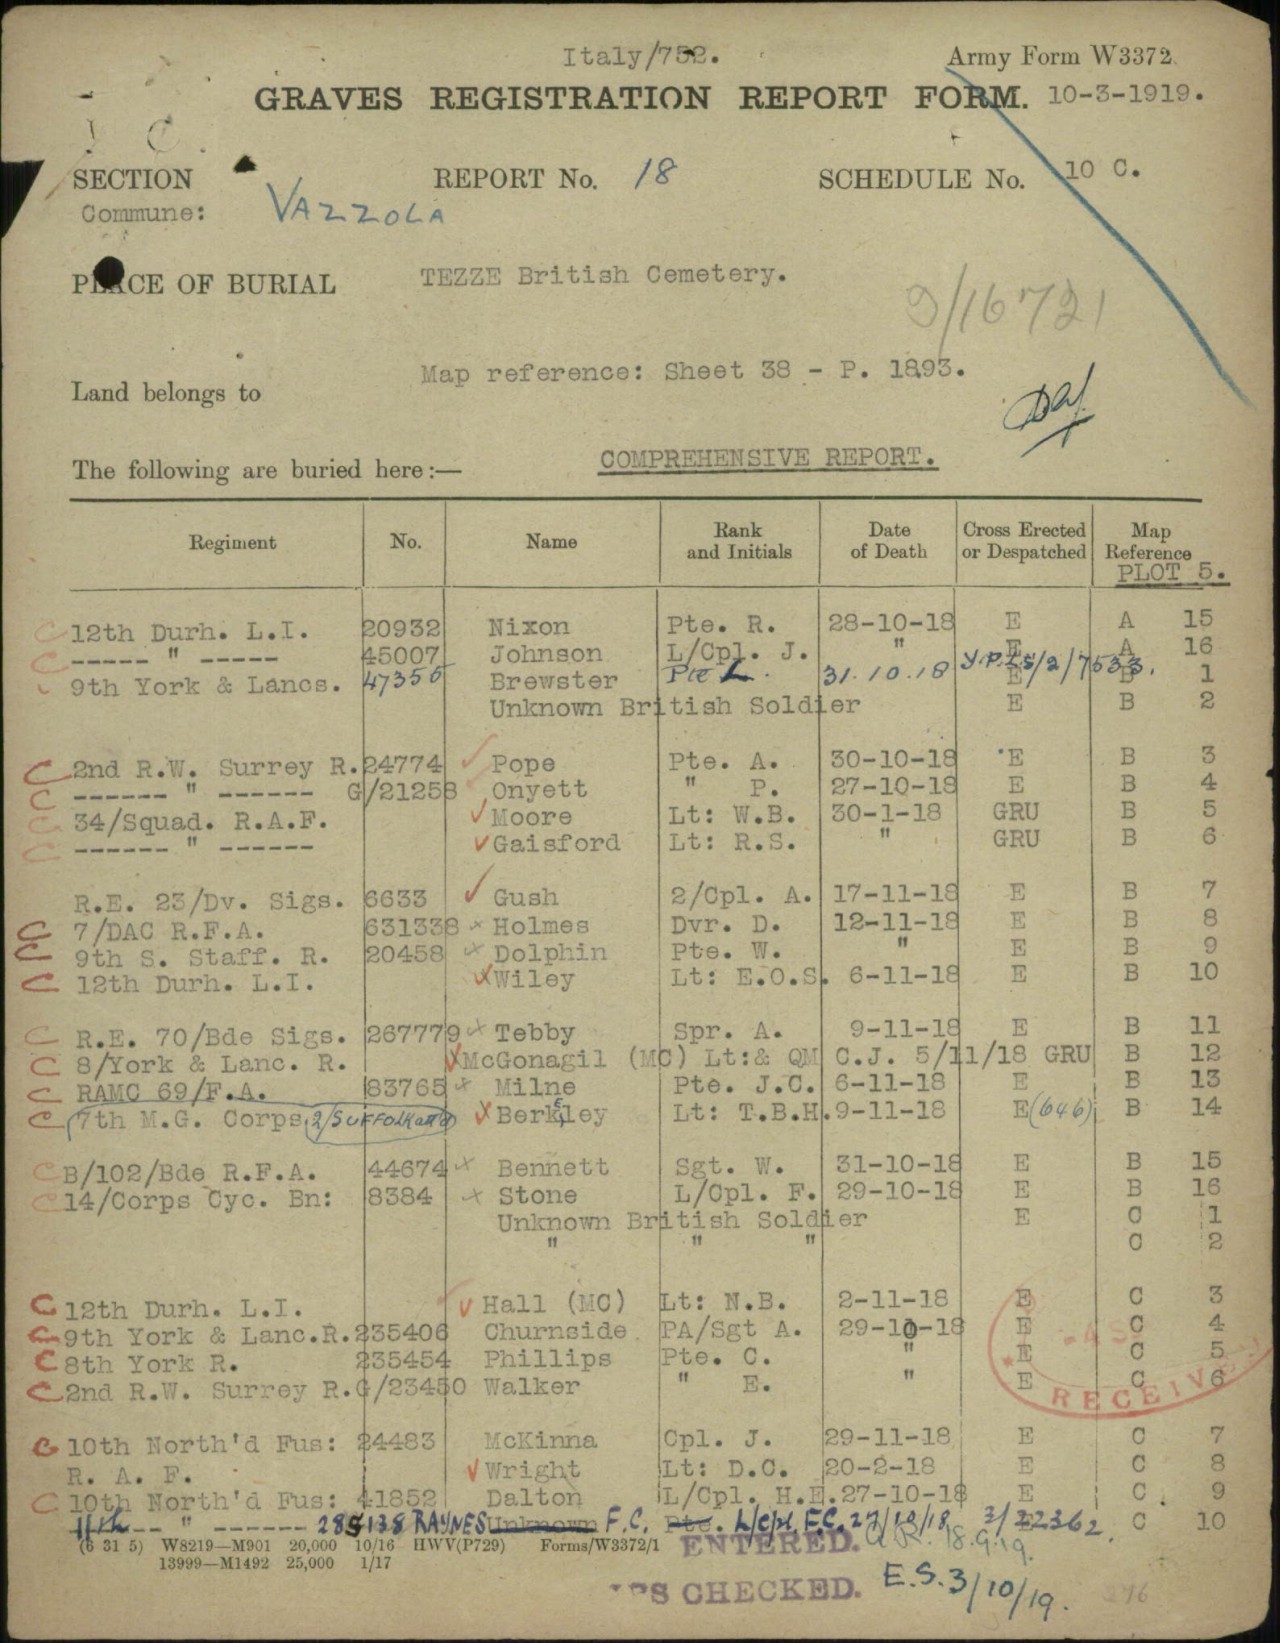 Italy/752. Army Form W3372
GRAVES REGISTRATION REPORT FORM. 10-3-1919.
SECTION REPORT No. 18 SCHEDULE No. 10 C.
Commune: VAZZOLA
PLACE OF BURIAL TEZZE British Cemetery.
9/16721
Map reference: Sheet 38 - P. 1893.
Land belongs to
The following are buried here:— COMPREHENSIVE REPORT.
Regiment No. Name Rank and Initials Date of Death Cross Erected or Despatched Map Reference
PLOT 5.
C 12th Durh. L.I. 20932 Nixon Pte. R. 28-10-18 E A 15
C ----- " ----- 45007 Johnson L/Cpl. J. " E A 16
9th York & Lancs. 47355 Brewster Pte L. 31.10.18 E B 1
Unknown British Soldier E B 2
C 2nd R.W. Surrey R. 24774 Pope Pte. A. 30-10-18 E B 3
C ------ " ------ G/21258 Onyett " P. 27-10-18 E B 4
C 34/Squad. R.A.F. Moore Lt: W.B. 30-1-18 GRU B 5
C ------ " ------ Gaisford Lt: R.S. " GRU B 6
R.E. 23/Dv. Sigs. 6633 Gush 2/Cpl. A. 17-11-18 E B 7
C 7/DAC R.F.A. 631338 x Holmes Dvr. D. 12-11-18 E B 8
C 9th S. Staff. R. 20458 x Dolphin Pte. W. " E B 9
C 12th Durh. L.I. Wiley Lt: E.O.S. 6-11-18 E B 10
C R.E. 70/Bde Sigs. 267779 x Tebby Spr. A. 9-11-18 E B 11
C 8/York & Lanc. R. McGonagil (MC) Lt:& QM C.J. 5/11/18 GRU B 12
C RAMC 69/F.A. 83765 x Milne Pte. J.C. 6-11-18 E B 13
C 7th M.G. Corps 2/SUFFOLK attd x Berkeley Lt: T.B.H. 9-11-18 E (646) B 14
C B/102/Bde R.F.A. 44674 x Bennett Sgt. W. 31-10-18 E B 15
C 14/Corps Cyc. Bn: 8384 x Stone L/Cpl. F. 29-10-18 E B 16
Unknown British Soldier E C 1
" " " C 2
C 12th Durh. L.I. Hall (MC) Lt: N.B. 2-11-18 E C 3
C 9th York & Lanc.R. 235406 Churnside PA/Sgt A. 29-10-18 E C 4
C 8th York R. 235454 Phillips Pte. C. " E C 5
C 2nd R.W. Surrey R. G/23450 Walker " E. " E C 6
RECEIVED
C 10th North'd Fus: 24483 McKinna Cpl. J. 29-11-18 E C 7
R. A. F. Wright Lt: D.C. 20-2-18 E C 8
C 10th North'd Fus: 41852 Dalton L/Cpl. H.E. 27-10-18 E C 9
11th -- " ------ 285138 RAYNES Unknown F.C. Pte. L/C/pl F.C. 27/10/18 3/22362. E C 10
(6 31 5) W8219—M901 20,000 10/16 HWV(P729) Forms/W3372/1 ENTERED. 18.9.19.
13999—M1492 25,000 1/17
CHECKED. E.S.3/10/19.